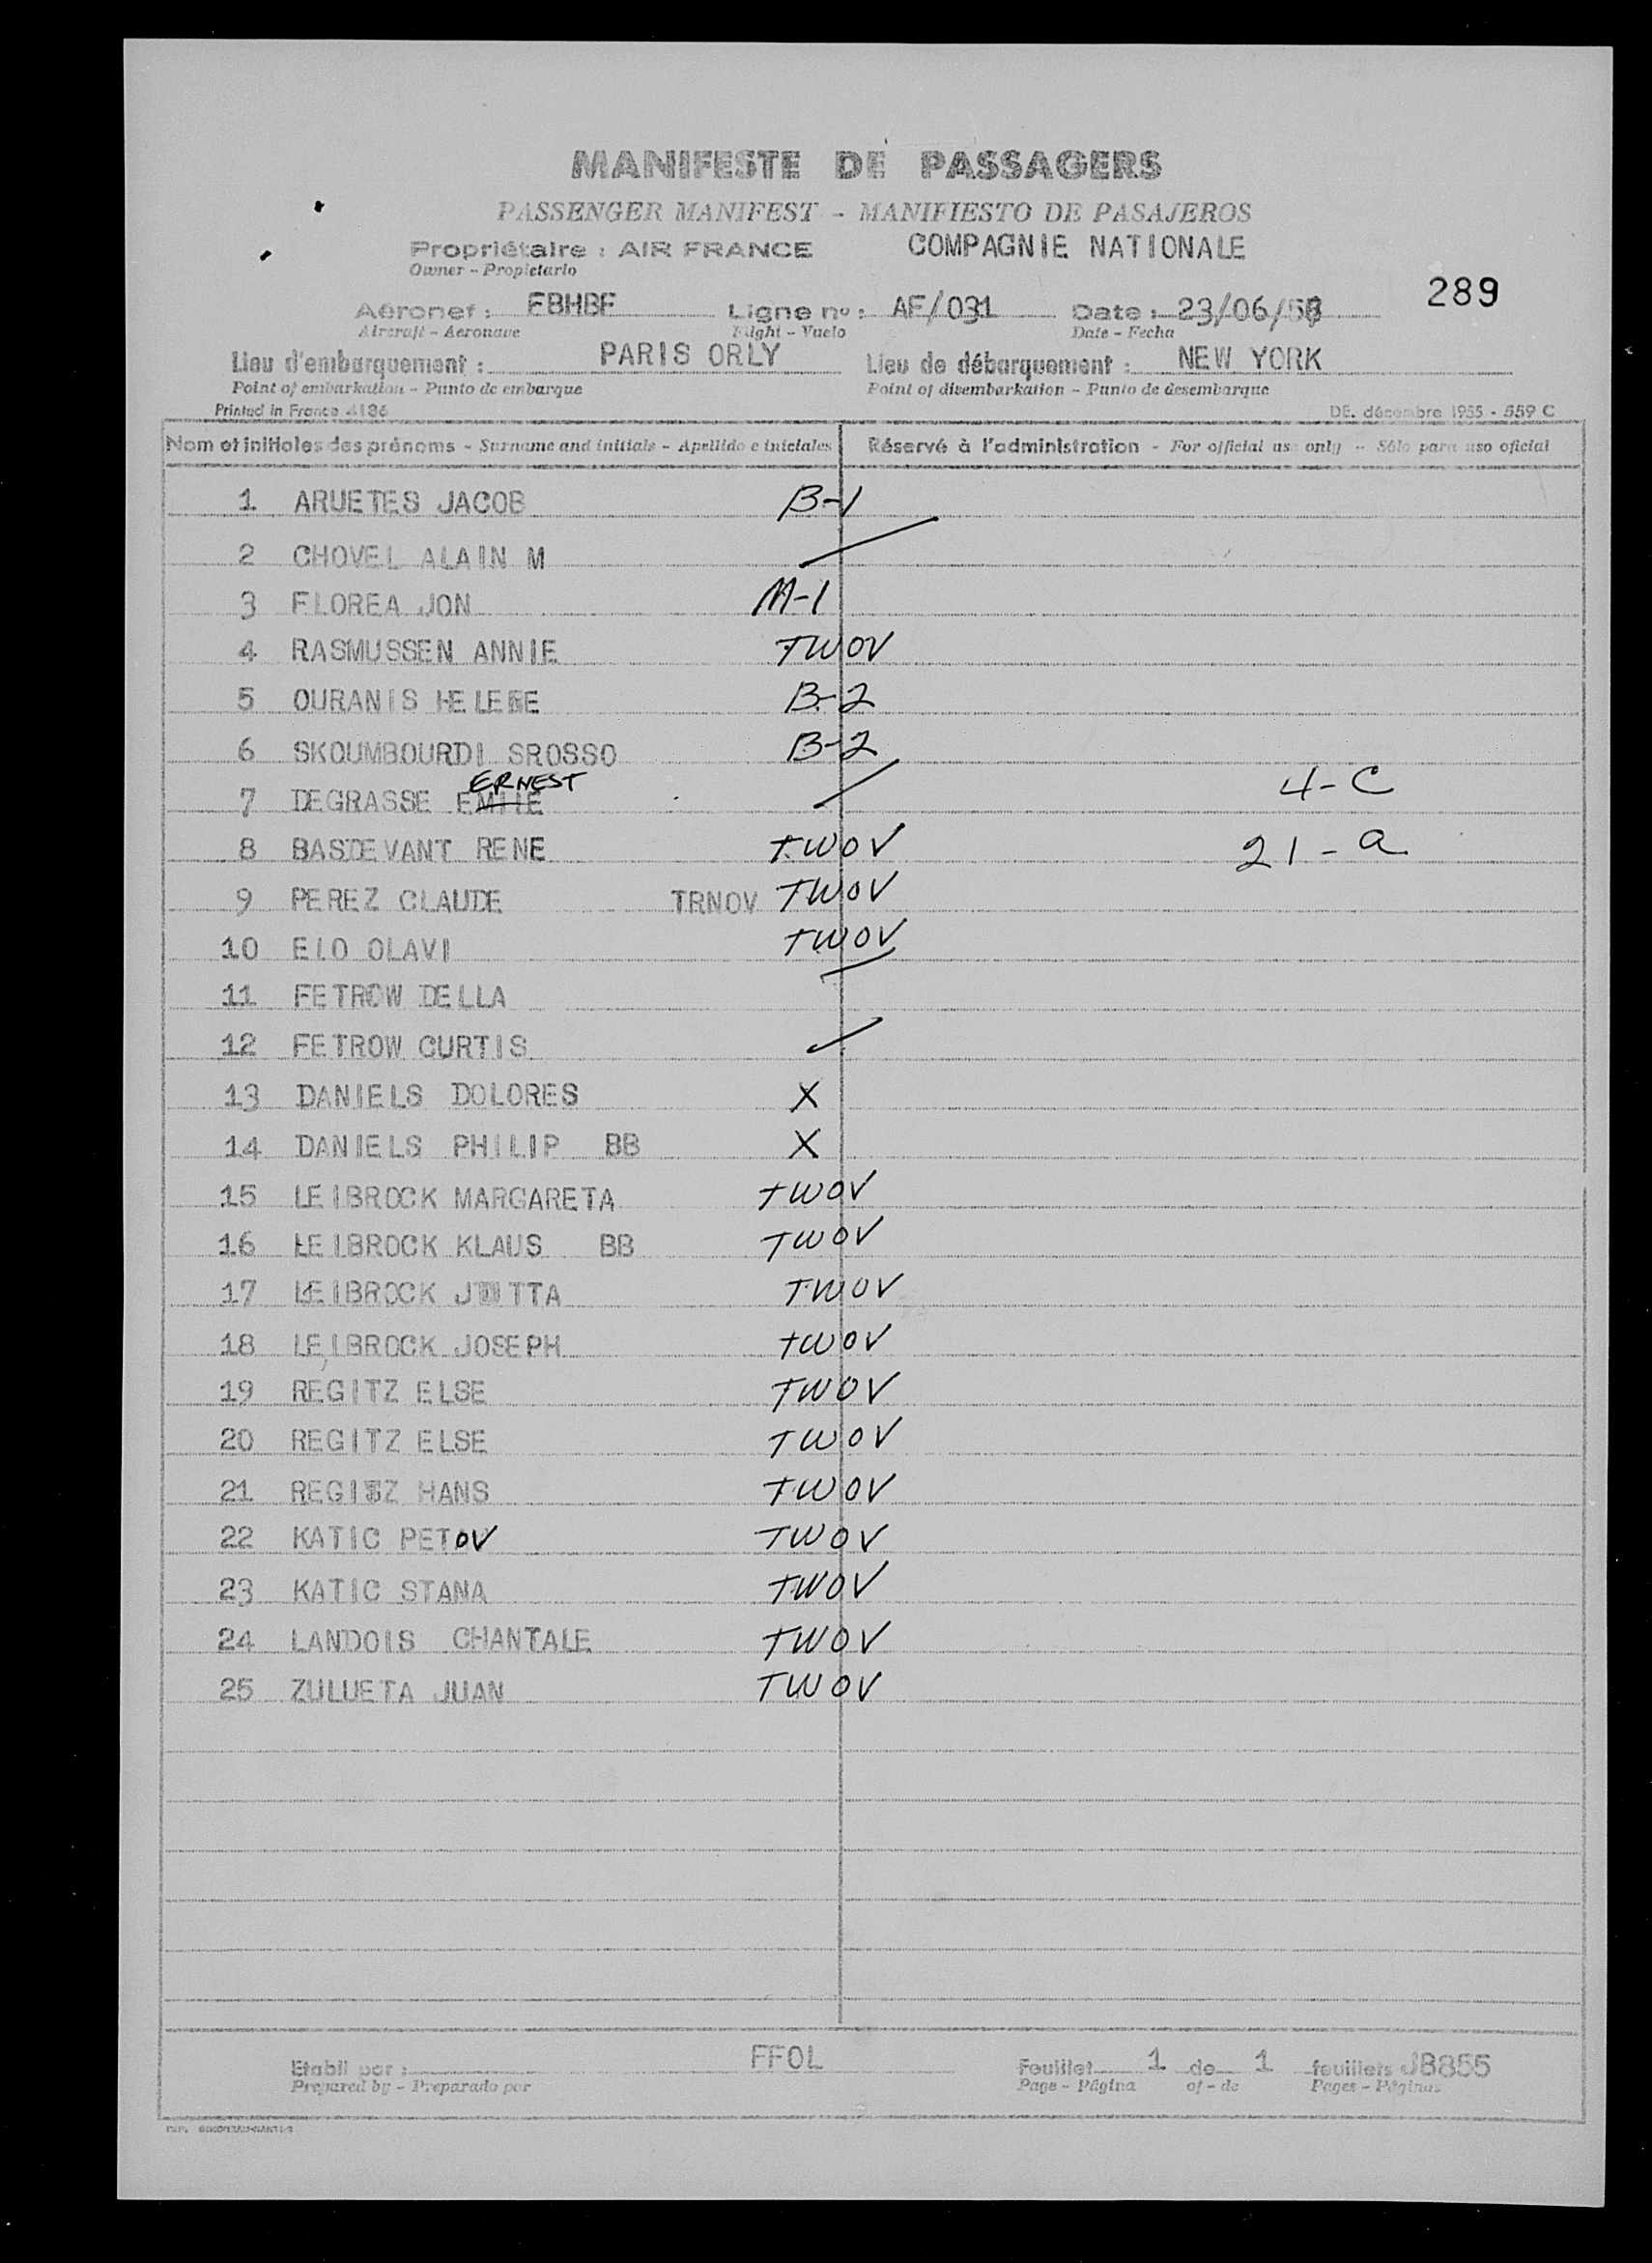 MANIFESTE DE PASSAGERS
PASSENGER MANIFEST - MANIFIESTO DE PASAJEROS
Propriétaire : AIR FRANCE COMPAGNIE NATIONALE
Owner - Propietario
289
Aéronef : FBHBF Ligne no : AF/031 Date : 23/06/58
Aircraft - Aeronave Flight - Vuelo Date - Fecha
Lieu d'embarquement : PARIS ORLY Lieu de débarquement : NEW YORK
Point of embarkation - Punto de embarque Point of disembarkation - Punto de desembarque
Printed in France 4186 DE. décembre 1955 - 559 C
Nom et initiales des prénoms - Surname and initials - Apellido e iniciales Réservé à l'administration - For official use only - Sólo para uso oficial
1 ARUETES JACOB B-1
2 CHOVEL ALAIN M
3 FLOREA JON M-1
4 RASMUSSEN ANNIE TWOV
5 OURANIS HELENE B-2
6 SKOUMBOURDI SROSSO B-2
ERNEST
7 DEGRASSE EMILE 4-C
8 BASDEVANT RENE TWOV 21-a
9 PEREZ CLAUDE TRNOV TWOV
10 ELO OLAVI TWOV
11 FETROW DELLA
12 FETROW CURTIS
13 DANIELS DOLORES X
14 DANIELS PHILIP BB X
15 LEIBROCK MARGARETA TWOV
16 LEIBROCK KLAUS BB TWOV
17 LEIBROCK JUTTA TWOV
18 LEIBROCK JOSEPH TWOV
19 REGITZ ELSE TWOV
20 REGITZ ELSE TWOV
21 REGITZ HANS TWOV
22 KATIC PETOV TWOV
23 KATIC STANA TWOV
24 LANDOIS CHANTALE TWOV
25 ZULUETA JUAN TWOV
Etabli par : FFOL Feuillet 1 de 1 feuillets J8855
Prepared by - Preparado por Page - Página of - de Pages - Páginas